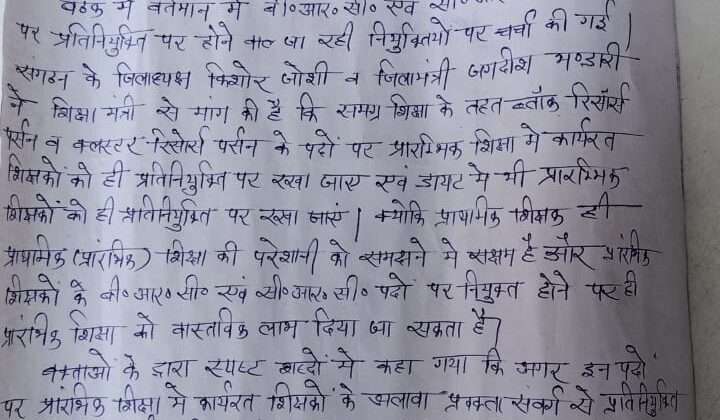 बैठक में वर्तमान में बी०आर०सी० एवं
पर प्रतिनियुक्ति पर होने वाल जा रही नियुक्तियों पर चर्चा की गई |
संगठन के जिलाध्यक्ष किशोर जोशी व जिलामंत्री जगदीश भण्डारी
ने शिक्षा मंत्री से मांग की है कि समग्र शिक्षा के तहत ब्लॉक रिसोर्स
पर्सन व क्लस्टर रिसोर्स पर्सन के पदों पर प्रारम्भिक शिक्षा में कार्यरत
शिक्षकों को ही प्रतिनियुक्ति पर रखा जाए एवं डायट में भी प्रारम्भिक
शिक्षकों को ही प्रतिनियुक्ति पर रखा जाएं | क्योंकि प्राथमिक शिक्षक ही
प्राथमिक (प्रारंभिक) शिक्षा की परेशानी को समझने में सक्षम है और प्रारंभिक
शिक्षकों के बी०आर०सी० एवं सी०आर०सी० पदों पर नियुक्त होने पर ही
प्रारंभिक शिक्षा को वास्तविक लाभ दिया जा सकता है|
वक्ताओं के द्वारा स्पष्ट शब्दों में कहा गया कि अगर इन पदों
पर प्रारंभिक शिक्षा में कार्यरत शिक्षकों के अलावा प्रवक्ता संवर्ग से प्रतिनियुक्ति